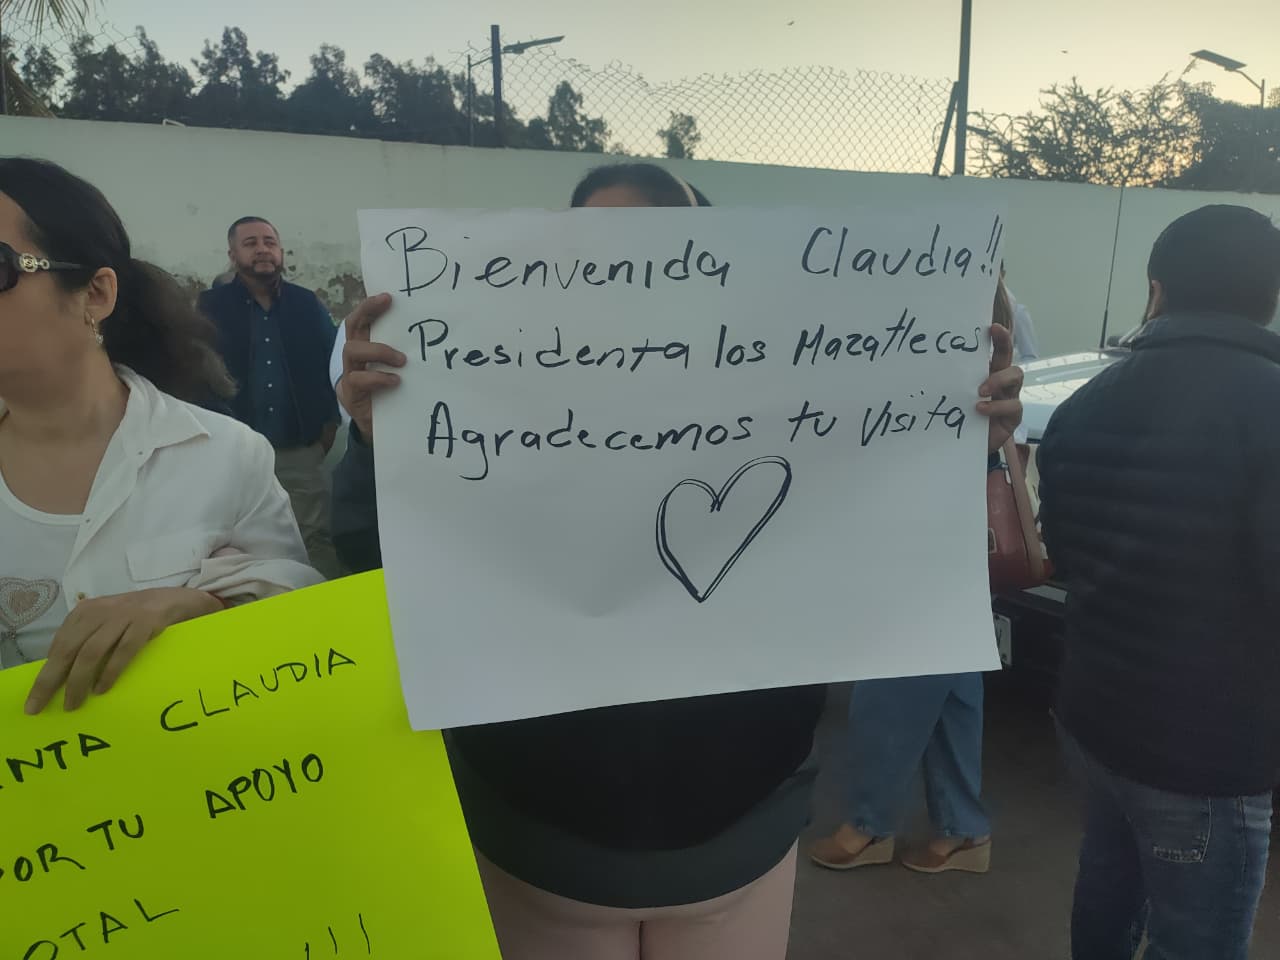 Bienvenida Claudia!!
Presidenta los Mazatlecas
Agradecemos tu visita
ENTA CLAUDIA
POR TU APOYO
OTAL
!!!